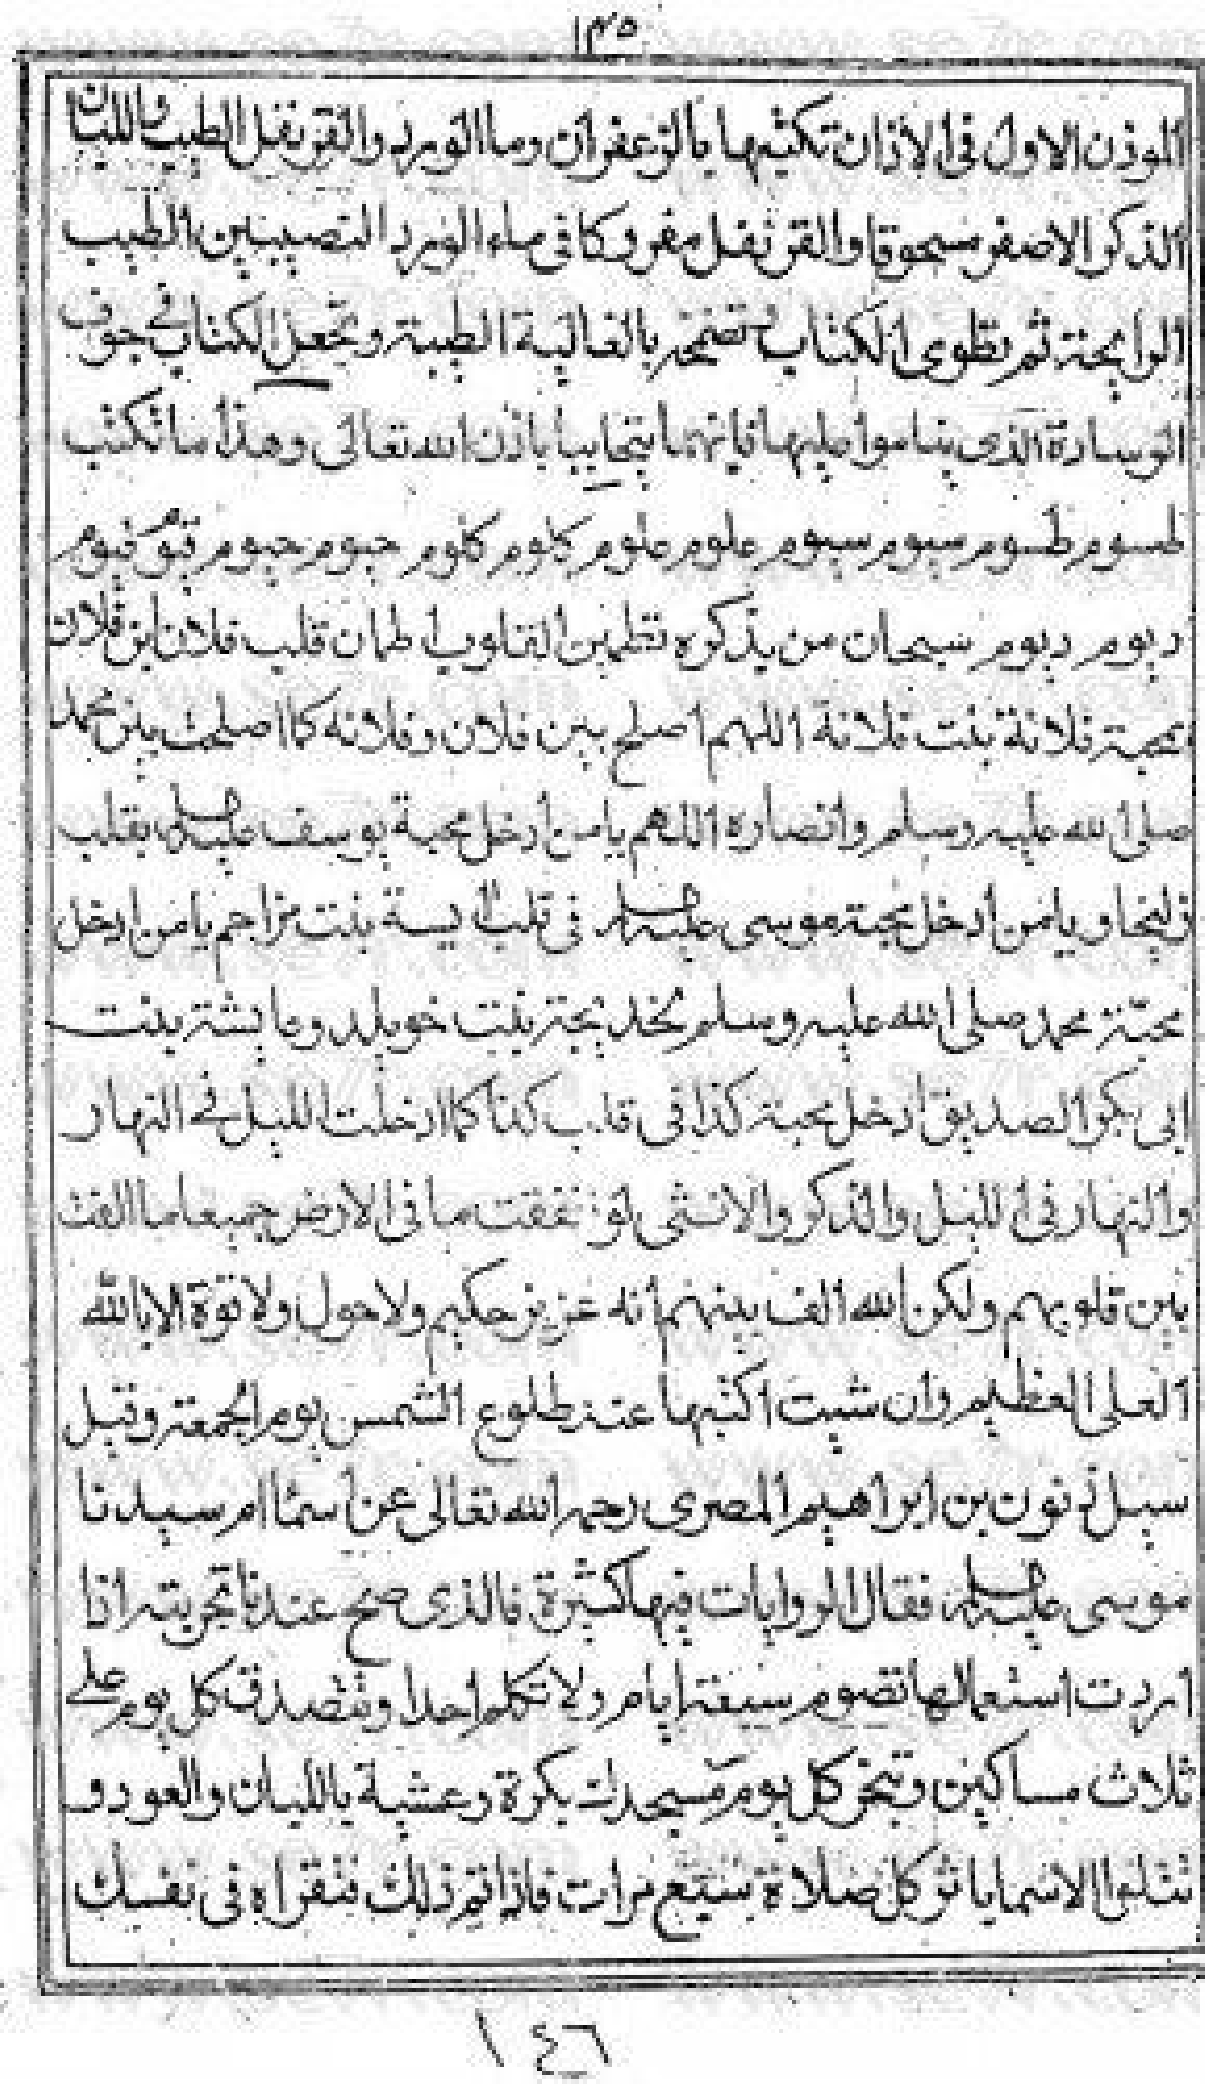 ١٣٥
الموذن الاول في الاذان تكتبها بالزعفران وما الورد والقرنفل الطيب واللبان
الذكر الاصفر مسحوقا والقرنفل مفروكا في ماء الورد النصيبين الطيب
الرايحة ثم تطوى الكتاب وتضمخه بالغالية الطيبة وتجعل الكتاب في جوف
الوسادة الذى يناموا عليها فانهما يتحاببا باذن الله تعالى وهذا ما تكتب
طسوم طسوم سيوم سيوم علوم علوم كلوم كلوم حيوم حيوم قيوم قيوم
ديوم ديوم سبحان من بذكره تطمين القلوب اطمان قلب فلان ابن فلان
بمحبة فلانة بنت فلانة اللهم اصلح بين فلان وفلانه كما اصلحت بين محمد
صلى الله عليه وسلم وانصاره اللهم يا من ادخل محبة يوسف عليه السلم بقلب
زليخا ويا من ادخل محبة موسى عليه السلم في قلب اسية بنت مزاحم يا من ادخل
محبّة محمد صلى الله عليه وسلم بخديجة بنت خويلد وعايشة بنت
ابى بكر الصديق ادخل محبة كذا في قلب كذا كما ادخلت الليل في النهار
والنهار في الليل والذكر والانثى لو انفقت ما في الارض جميعا ما الفت
بين قلوبهم ولكن الله الف بينهم انه عزيز حكيم ولا حول ولا قوة الا بالله
العلى العظيم وان شيت اكتبها عند طلوع الشمس يوم الجمعة وقيل
سيل ذو نون بن ابراهيم المصرى رحمه الله تعالى عن اسما ام سيدنا
موسى عليه السلم فقال الروايات فيها كثيرة فالذى صح عندنا تجربته اذا
اردت استعمالها تصوم سبعة ايام ولا تكلم احدا وتتصدق كل يوم على
ثلاث مساكين وتبخر كل يوم مسجدك بكرة وعشية باللبان والعود و
تتلوا الاسما باثر كل صلاة سبع مرات فاذا تم ذلك تقراه في نفسك
١٤٦